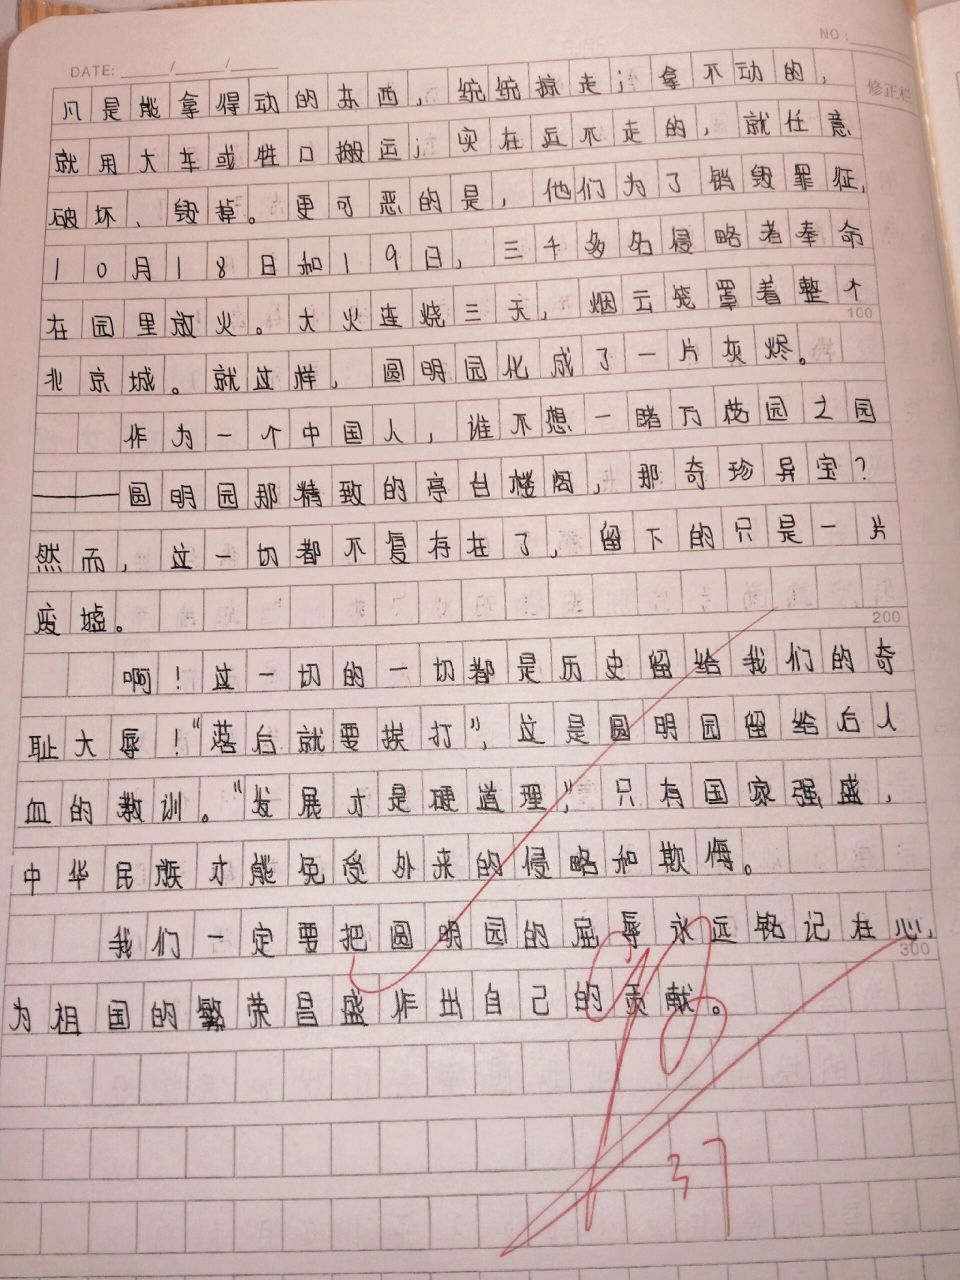 NO:
DATE: ___/___/___
修正栏
凡是能拿得动的东西，统统掠走；拿不动的，
就用大车或牲口搬运；实在运不走的，就任意
破坏、毁掉。更可恶的是，他们为了销毁罪征，
10月18日和19日，三千多名侵略者奉命
在园里放火。大火连烧三天，烟云笼罩着整个
100
北京城。就这样，圆明园化成了一片灰烬。
作为一个中国人，谁不想一睹万花园之园
——圆明园那精致的亭台楼阁，那奇珍异宝？
然而，这一切都不复存在了，留下的只是一片
废墟。
200
啊！这一切的一切都是历史留给我们的奇
耻大辱！“落后就要挨打”，这是圆明园留给后人
血的教训。“发展才是硬道理”，只有国家强盛，
中华民族才能免受外来的侵略和欺侮。
我们一定要把圆明园的屈辱永远铭记在心，
300
为祖国的繁荣昌盛作出自己的贡献。
37